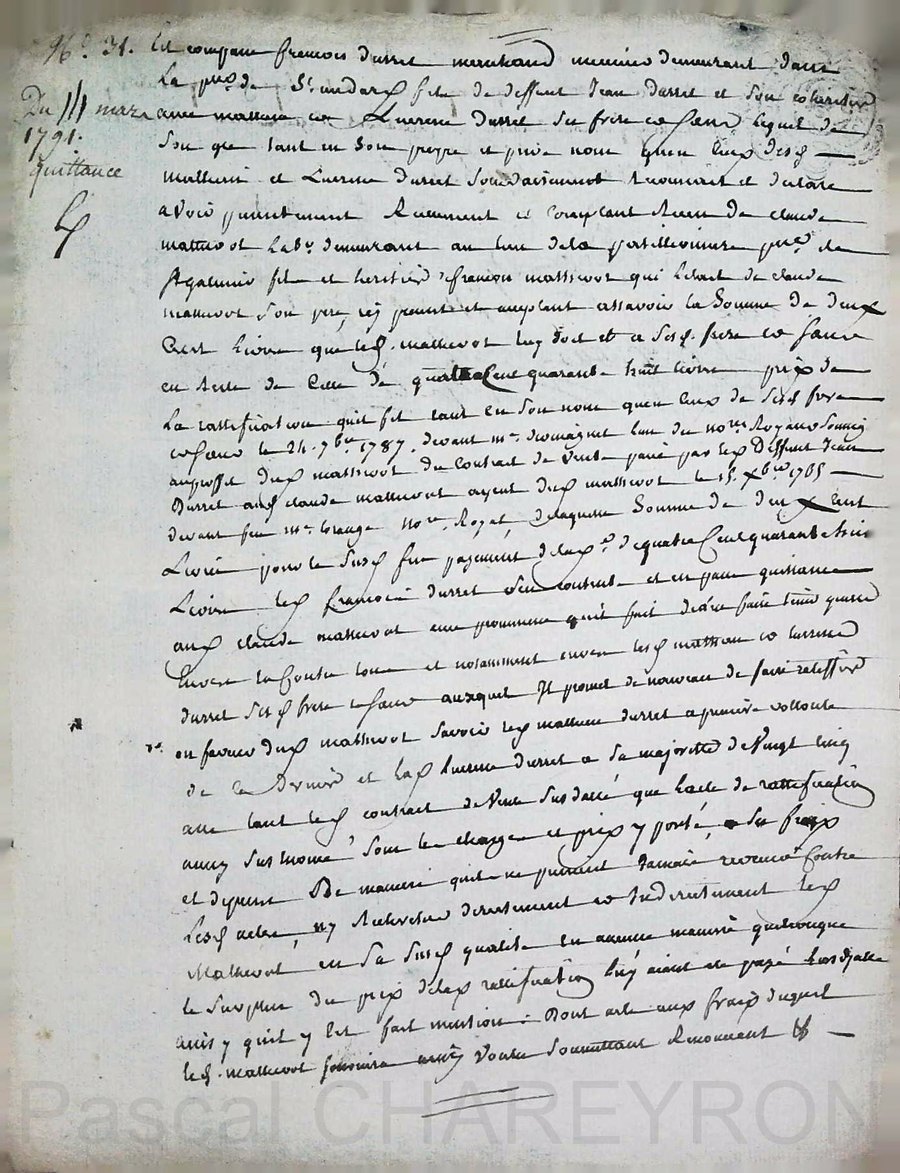 N° 31. Est comparu francois durret marchand meunier demeurant dans
la p.sse de St andard fils de deffunt Jean durret et son cohéritier
Du mars
1791.
quittance
avec mathieu et Lucresse durret ses frere et sœur, lequel de
son gré tant en son propre et privé nom qu'en ceux desd
mathieu et Lucresse durret reconnait et declare
avoir presentement Reellement et comptant Receu de claude
mathevot lab.r demeurant au lieu de la p.sse de
fils et heritier francois mathevot qui letait de claude
mathevot son pere, icy present et acceptant assavoir la Somme de deux
Cent Livres que led. mathevot luy doit et a sesd. frere et sœur
en Reste de Celle de quatre Cent quarante huit livres prix de
la rattification quil fit tant en son nom quen ceux de sesd frere
et sœur le 24. 7bre 1787. devant me lun des nores Royaux Soussig
au proffit dud mathevot du Contrat de Vente passé par led Deffunt Jean
Durret aud claude mathevot ayeul dud mathevot le 15. Xbre 1765
devant feu me nore Royal, de laquelle Somme de deux Cent
Livres pour le Susd fin payement de la de quatre Cent quarante huit
Livres led francois durret sen contente et en passe quittance
aud claude mathevot avec promesse quil fait de len faire tenir quitte
Envers et Contre tous et notamment envers lesd mathieu et lucresse
durret sesd frere et sœur auxquels Il promet de nouveau de faire ratiffier
en faveur dud mathevot Savoir led mathieu durret a premiere vollonté
de ce dernier et lad lucresse durret a sa majorité de Vingt Cinq
ans tant led contrat de Vente Susdatté que lacte de rattification
aussy sus enoncé sous les charges et prix y porté, a ses fraix
et depens De maniere quils ne puissent Jamais revenir Contre
Lesd actes, ny Rechercher directement et Indirectement led
Mathevot en sa Susd qualité En aucune maniere quelconque
le Surplus du prix de lad rattification luy aiant été payé lors dicelle
ainsy quil y Est fait mention. Dont acte aux fraix duquel
led. mathevot ainsy Voulu Soumettant Renonceant &
Pascal CHAREYRON